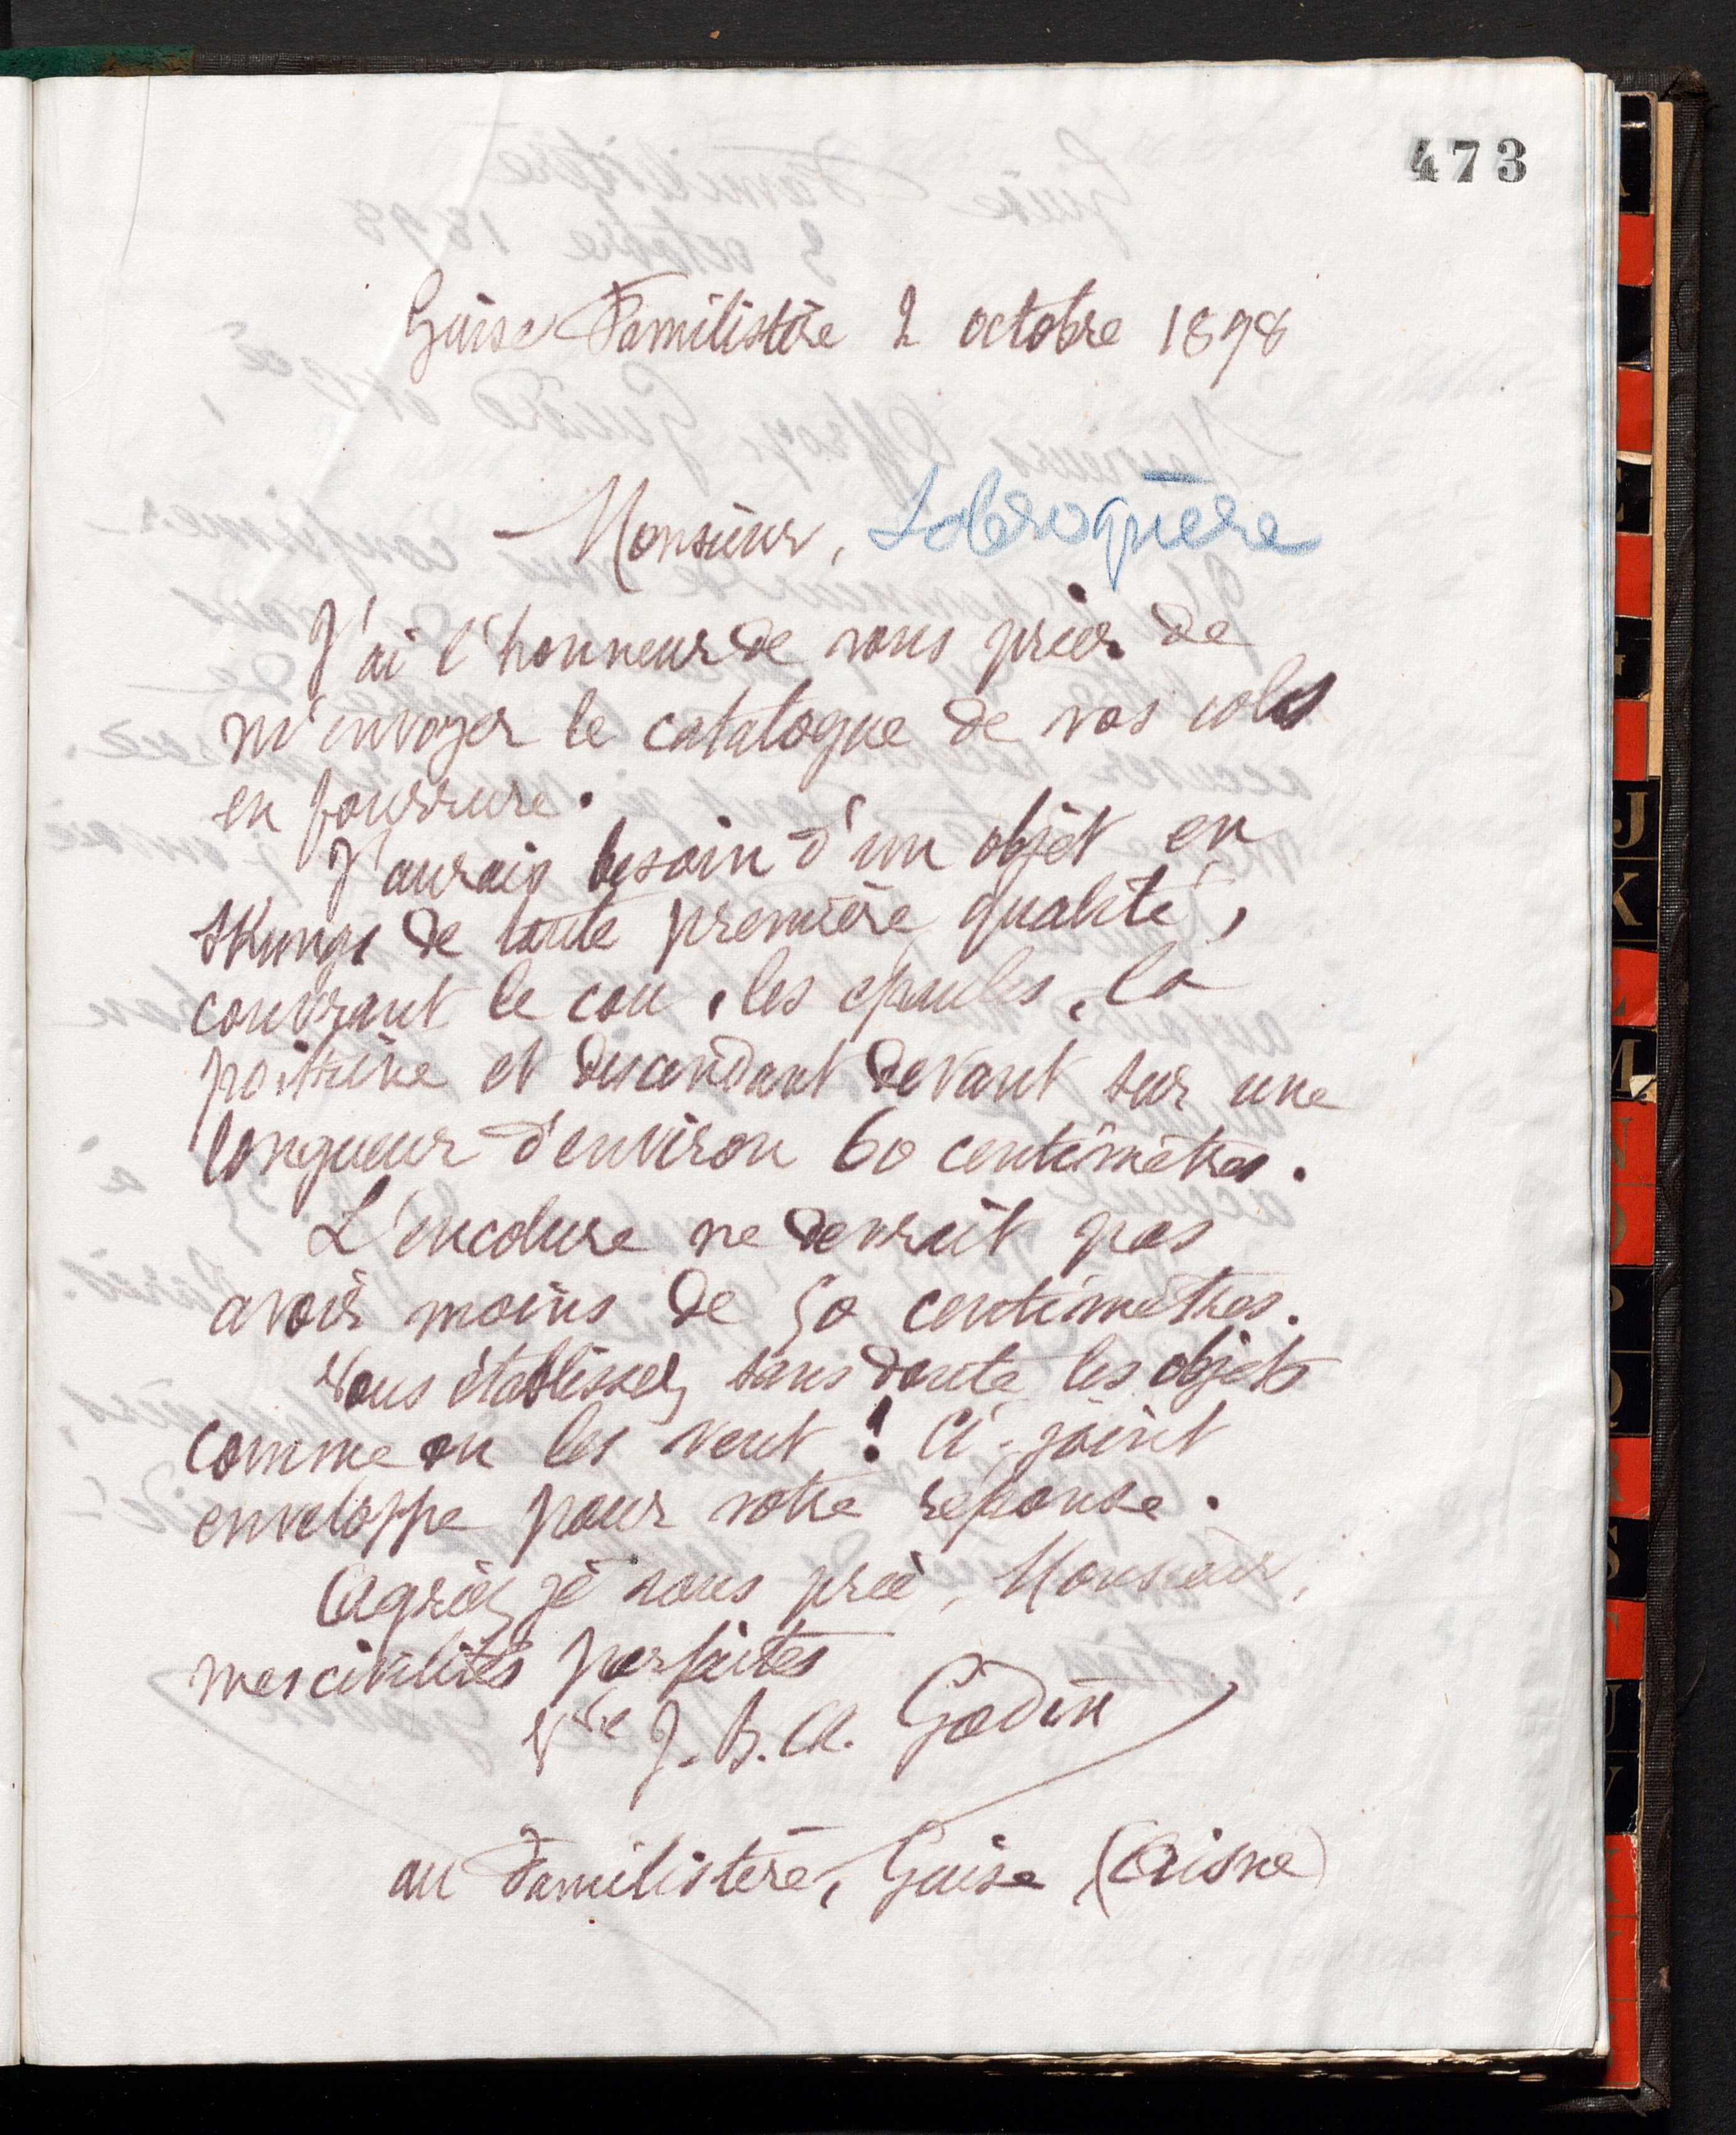 473
Guise Familistère 2 octobre 1898
Monsieur,
J'ai l'honneur de vous prier de
m'envoyer le catalogue de vos cols
en fourrure.
J'aurais besoin d'un objet en
skungs de toute première qualité,
couvrant le cou, les épaules, la
poitrine et descendant devant sur une
longueur d'environ 60 centimètres.
L'encolure ne devrait pas
avoir moins de 50 centimètres.
Vous établissez sans doute les objets
comme on les veut ! Ci-joint
enveloppe pour votre réponse.
Agréez, je vous prie, Monsieur,
mes civilités parfaites
Vve J.-B. A. Godin
au Familistère, Guise (Aisne)
J
K
M